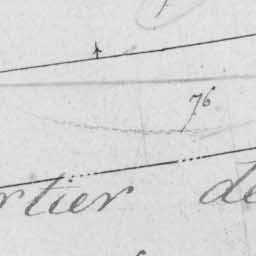 76
rtier de